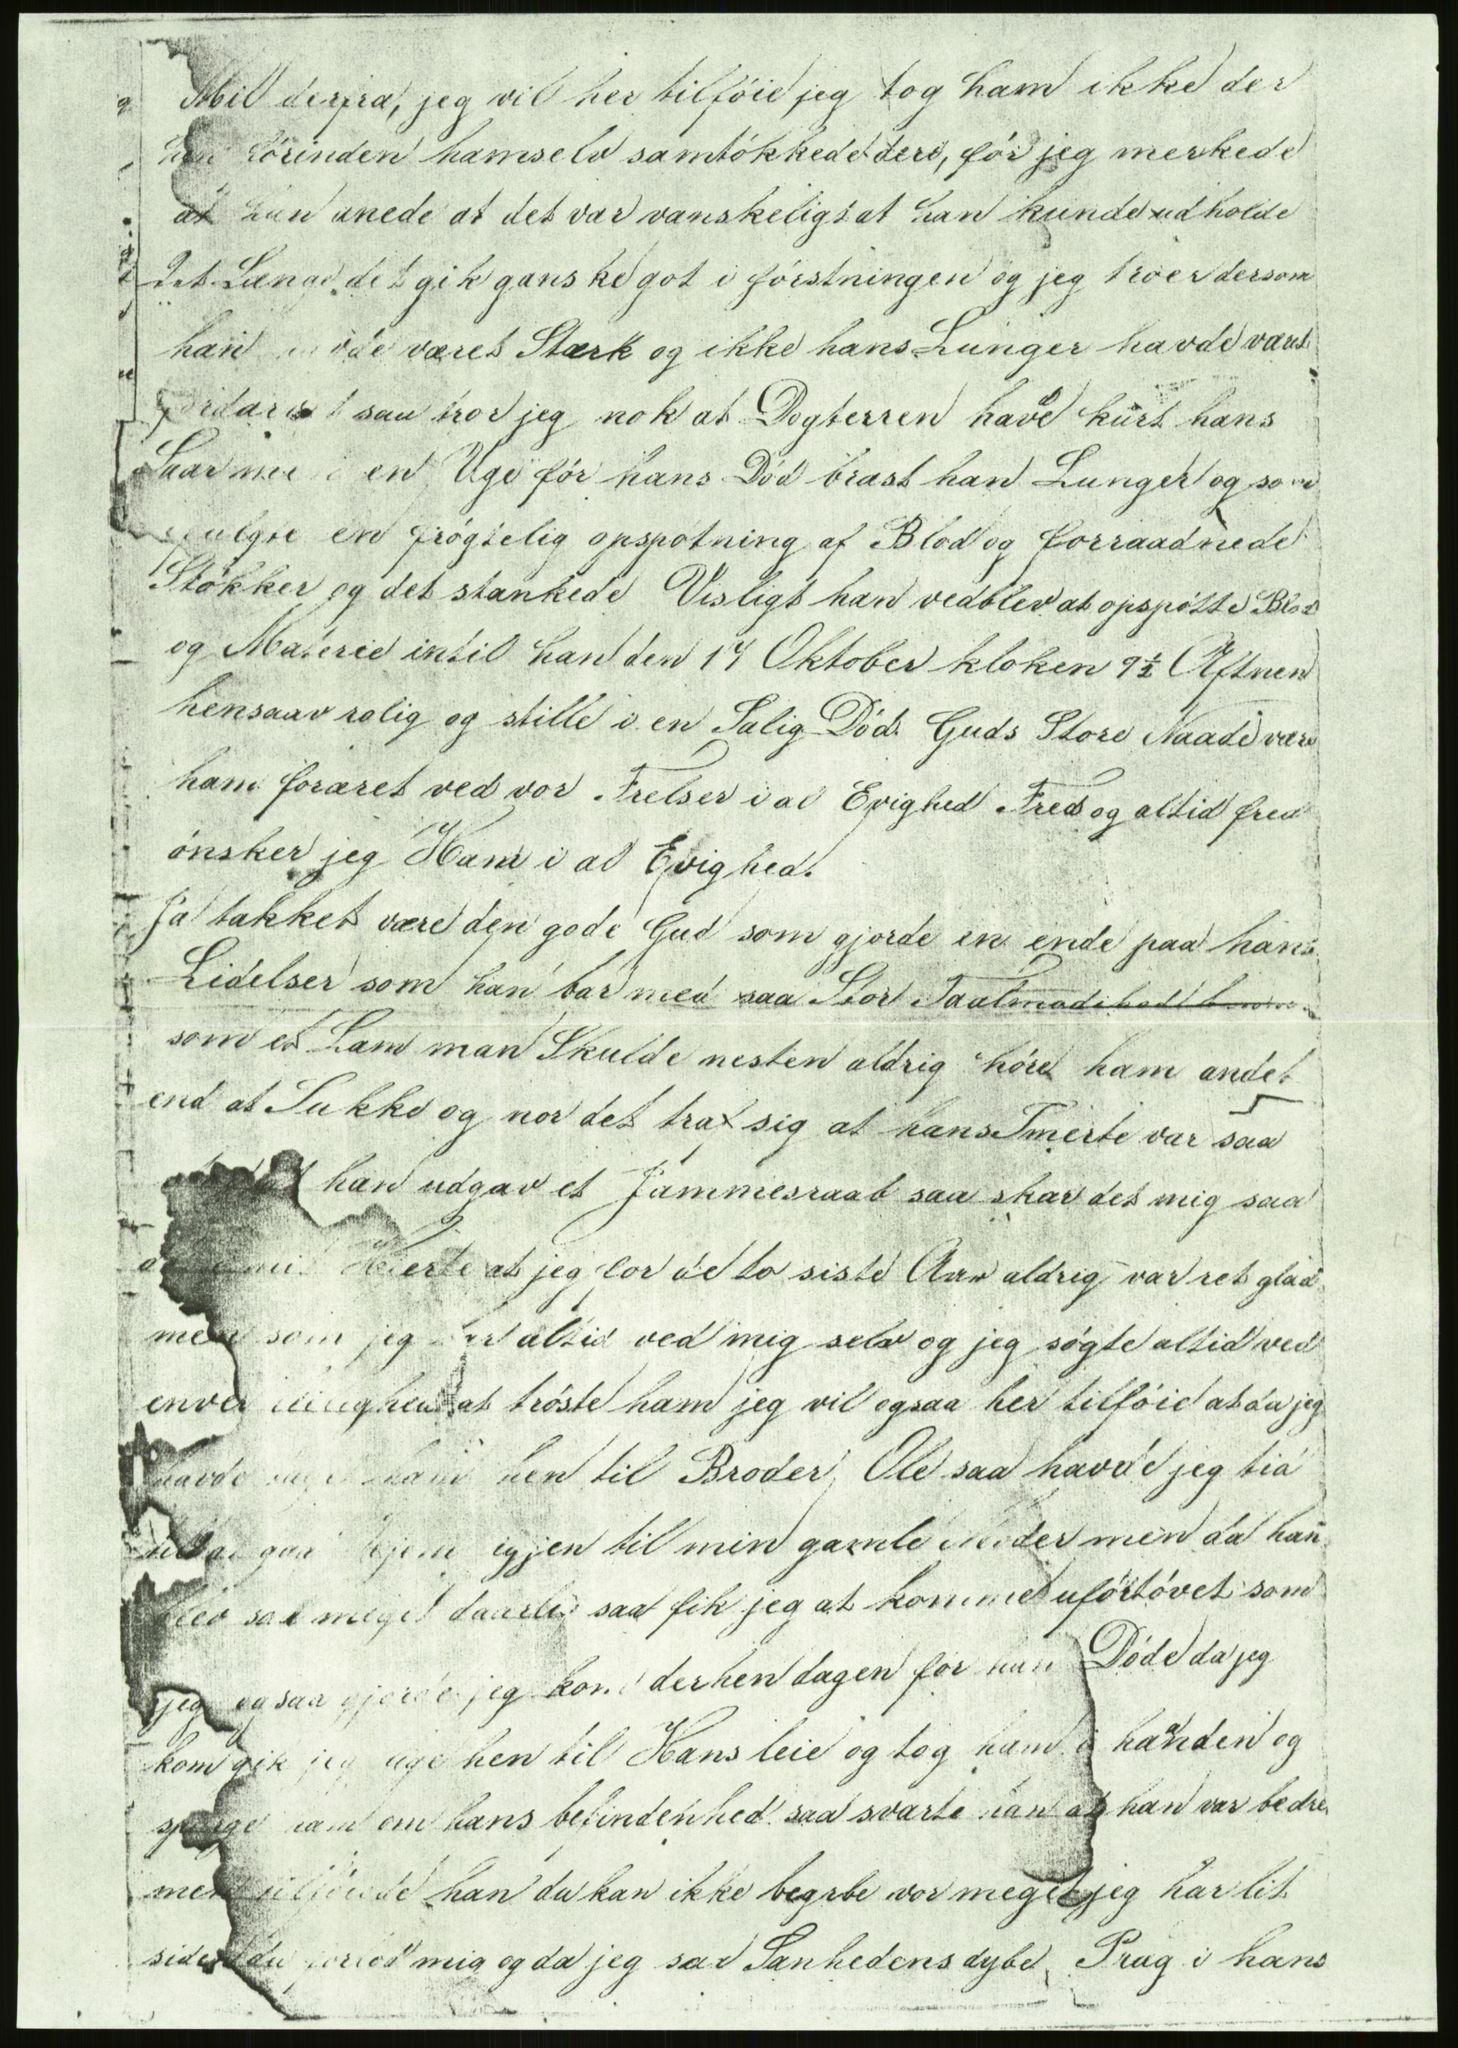 Mil derfra, jeg vil her tilföie jeg tog ham ikke der
hen förinden hamselv samtökkede deri, för jeg merkede
at han anede at det var vanskeligt at han kunde udholde
det Længe, det gik ganske got i förstningen og jeg troer dersom
han havde været Stærk og ikke hans Lunger havde været
fordærvet saa tror jeg nok at Dogterren havde kurt hans
Saar men i en Uge för hans Död brast han Lunger og som
en frögtelig opspotning af Blod og forraadnede
Stökker og det stankede Visligt han vedblev at opspötte Blod
og Materie intil han den 17 Oktober kloken 9½ Aftnen
hensaav rolig og stille i en Salig Död. Guds Store Naade være
ham foræret ved vor Frelser i al Evighed Fred og altid fred
önsker jeg Ham i al Evighed.
Ja takket være den gode Gud som gjorde en ende paa hans
Lidelser som han bar med saa Stor Taalmodihed
som et Lam man Skulde nesten aldrig höre ham andet
end at Sukke og nor det traf sig at hans Smerte var saa
han udgav et Jammesraab saa skar det mig saa
mit Hierte at jeg for de to siste Aar aldrig var ret glad
men som jeg altid ved mig selv og jeg sögte altid ved
enver at tröste ham jeg vil ogsaa her tilföie at da jeg
havde ham hen til Broder Ole saa havde jeg tid
hjem igjen til min gamle Moder men da han
blev saa meget daarlig saa fik jeg at komme ufortövet som
jeg ogsaa gjorde jeg kom derhen dagen for han Döde da jeg
kom gik jeg hen til Hans leie og tog ham i haanden og
ham om hans befindenhed saa svarte han at han var bedre
men tilföiede han du kan ikke begrbe vor meget jeg har lit
siden du forlod mig og da jeg saa Sanhedens dybe Prag i hans